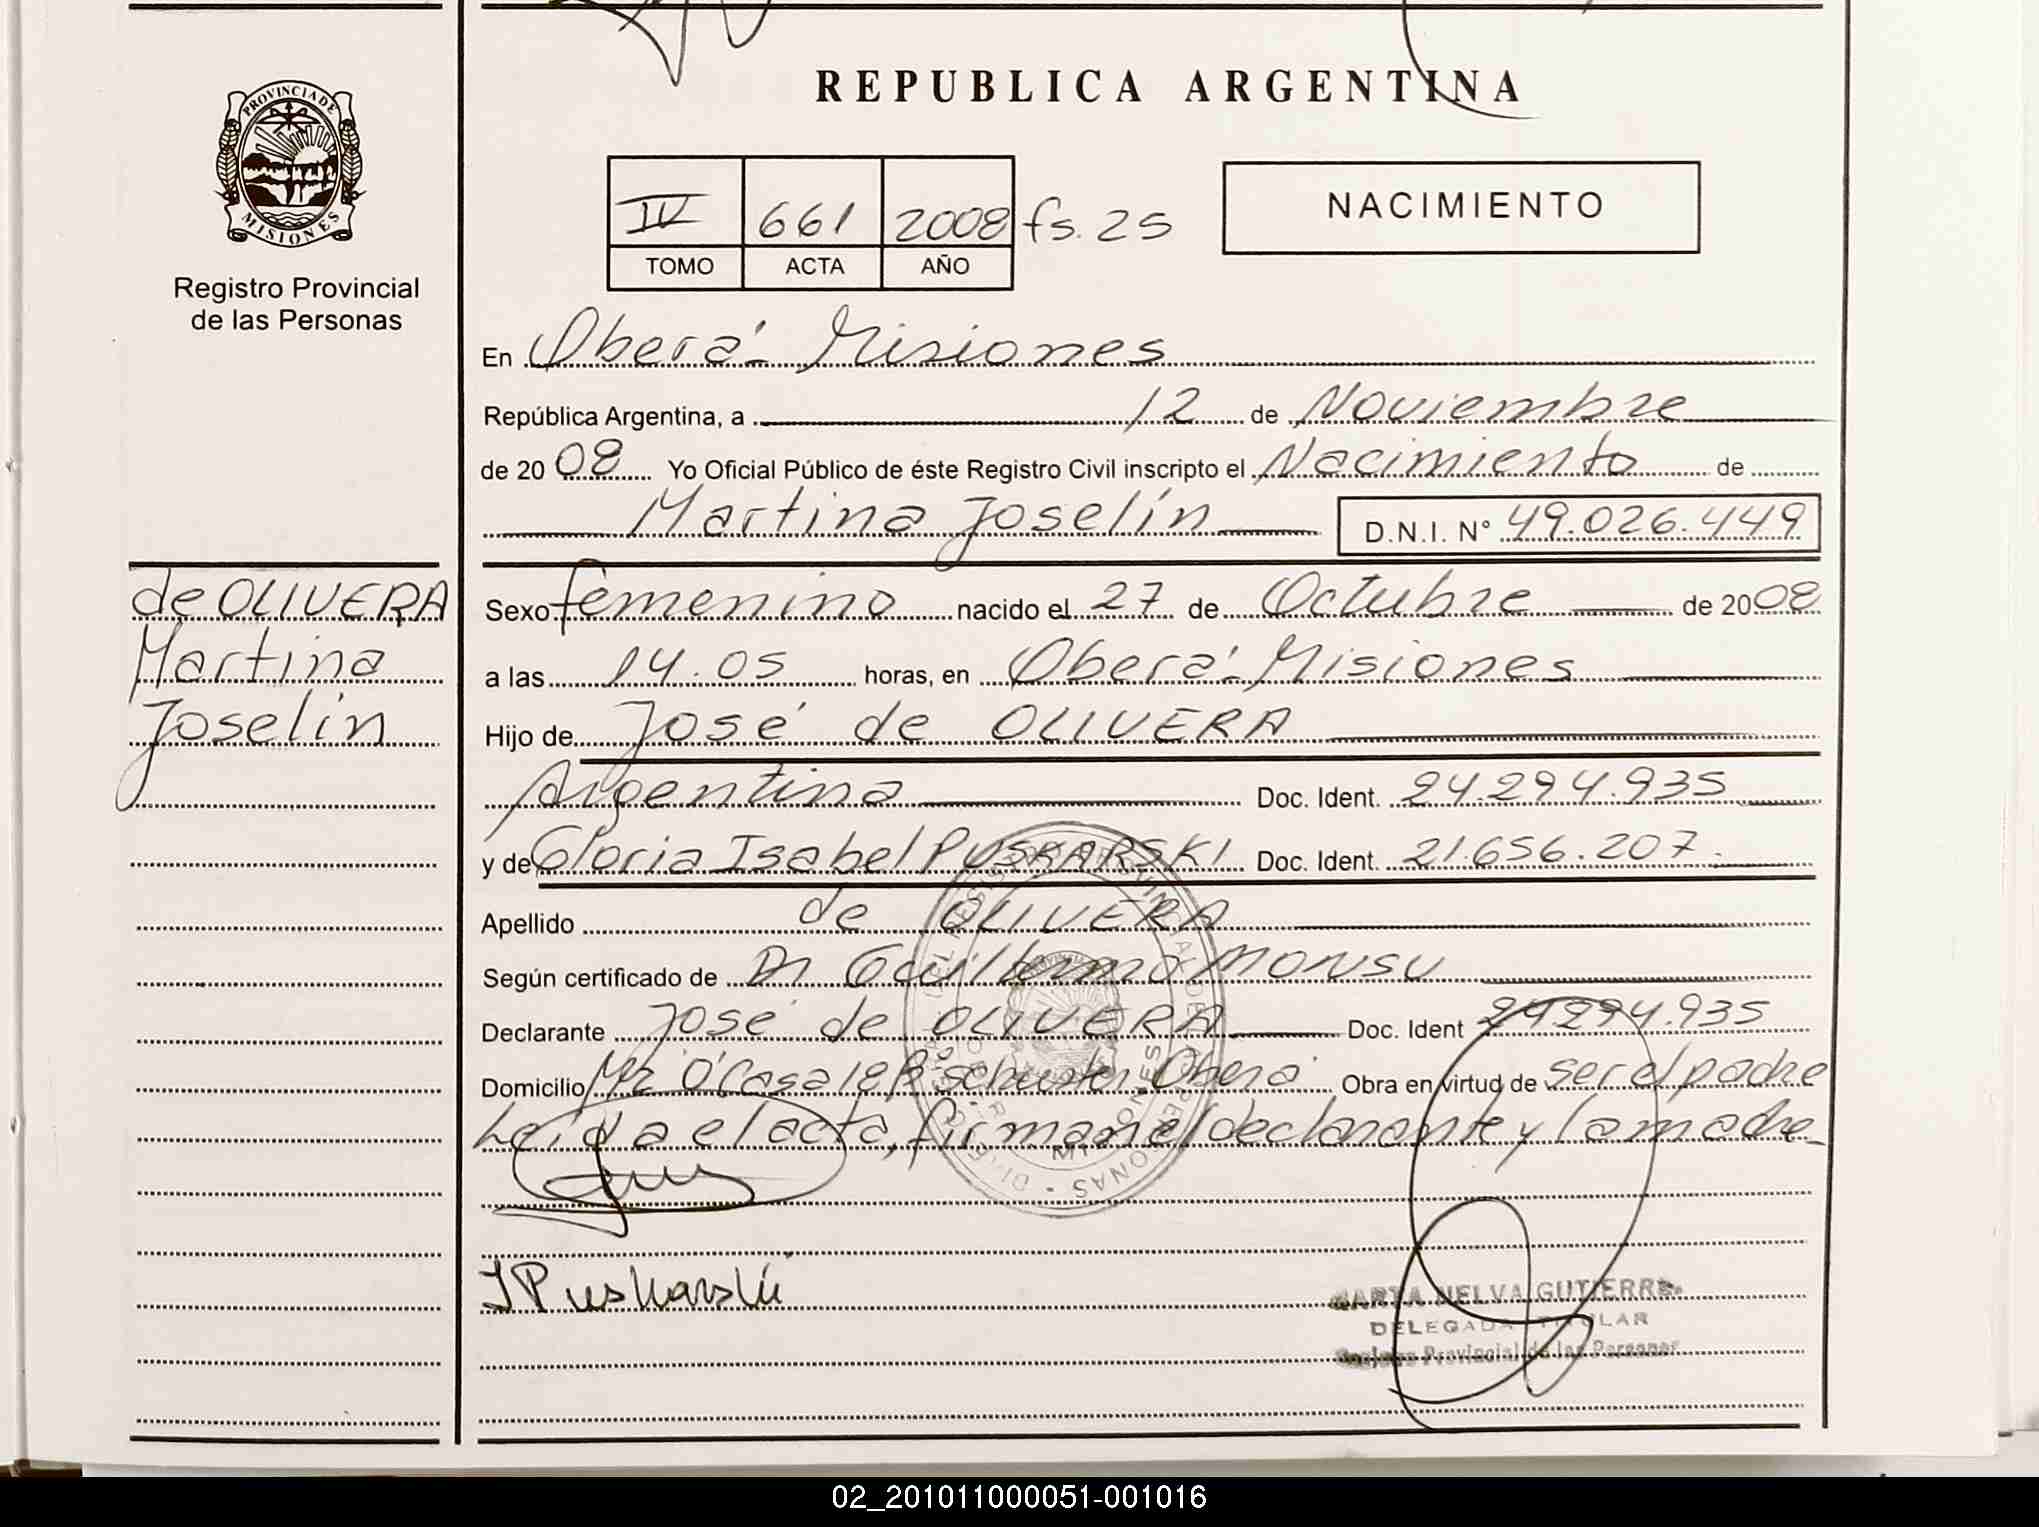 REPUBLICA ARGENTINA
PROVINCIA DE
MISIONES
Registro Provincial
de las Personas
IV 661 2008 fs. 25
TOMO ACTA AÑO
NACIMIENTO
En Oberá - Misiones
República Argentina, a 12 de Noviembre
de 20 08 Yo Oficial Público de éste Registro Civil inscripto el Nacimiento de
Martina Joselín D.N.I. N° 49.026.449
de OLIVERA
Martina
Joselín
Sexo femenino nacido el 27 de Octubre de 2008
a las 14.05 horas, en Oberá - Misiones
Hijo de José de OLIVERA
Argentina Doc. Ident. 24.294.935
y de Gloria Isabel PUSKARSKI Doc. Ident. 21.656.207.
Apellido de OLIVERA
Según certificado de Dr Guillermo MONSU
Declarante José de OLIVERA Doc. Ident 24.294.935
Domicilio Mz O' Casa 18 B° Schuster Oberá Obra en virtud de ser el padre
Leída el acta, firman el declarante y la madre
I Puskarski
MARTA NELVA GUTIERRE
DELEGADA TITULAR
Registro Provincial de las Personas
02_201011000051-001016